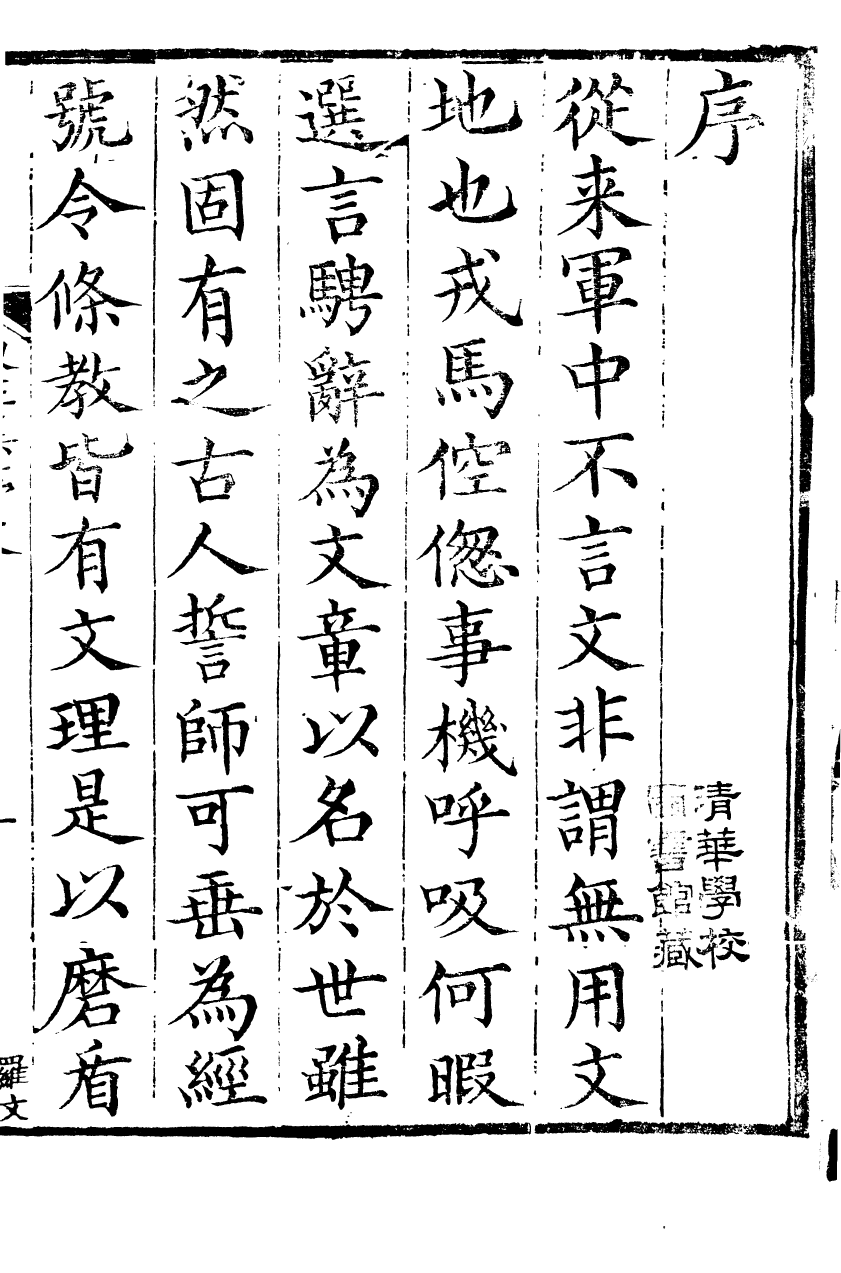 序
從来軍中不言文非謂無用文
地也戎馬倥偬事機呼吸何暇
選言騁辭為文章以名於世雖
然固有之古人誓師可垂為經
號令條教皆有文理是以磨盾
清華學校
圖書館藏
羅文